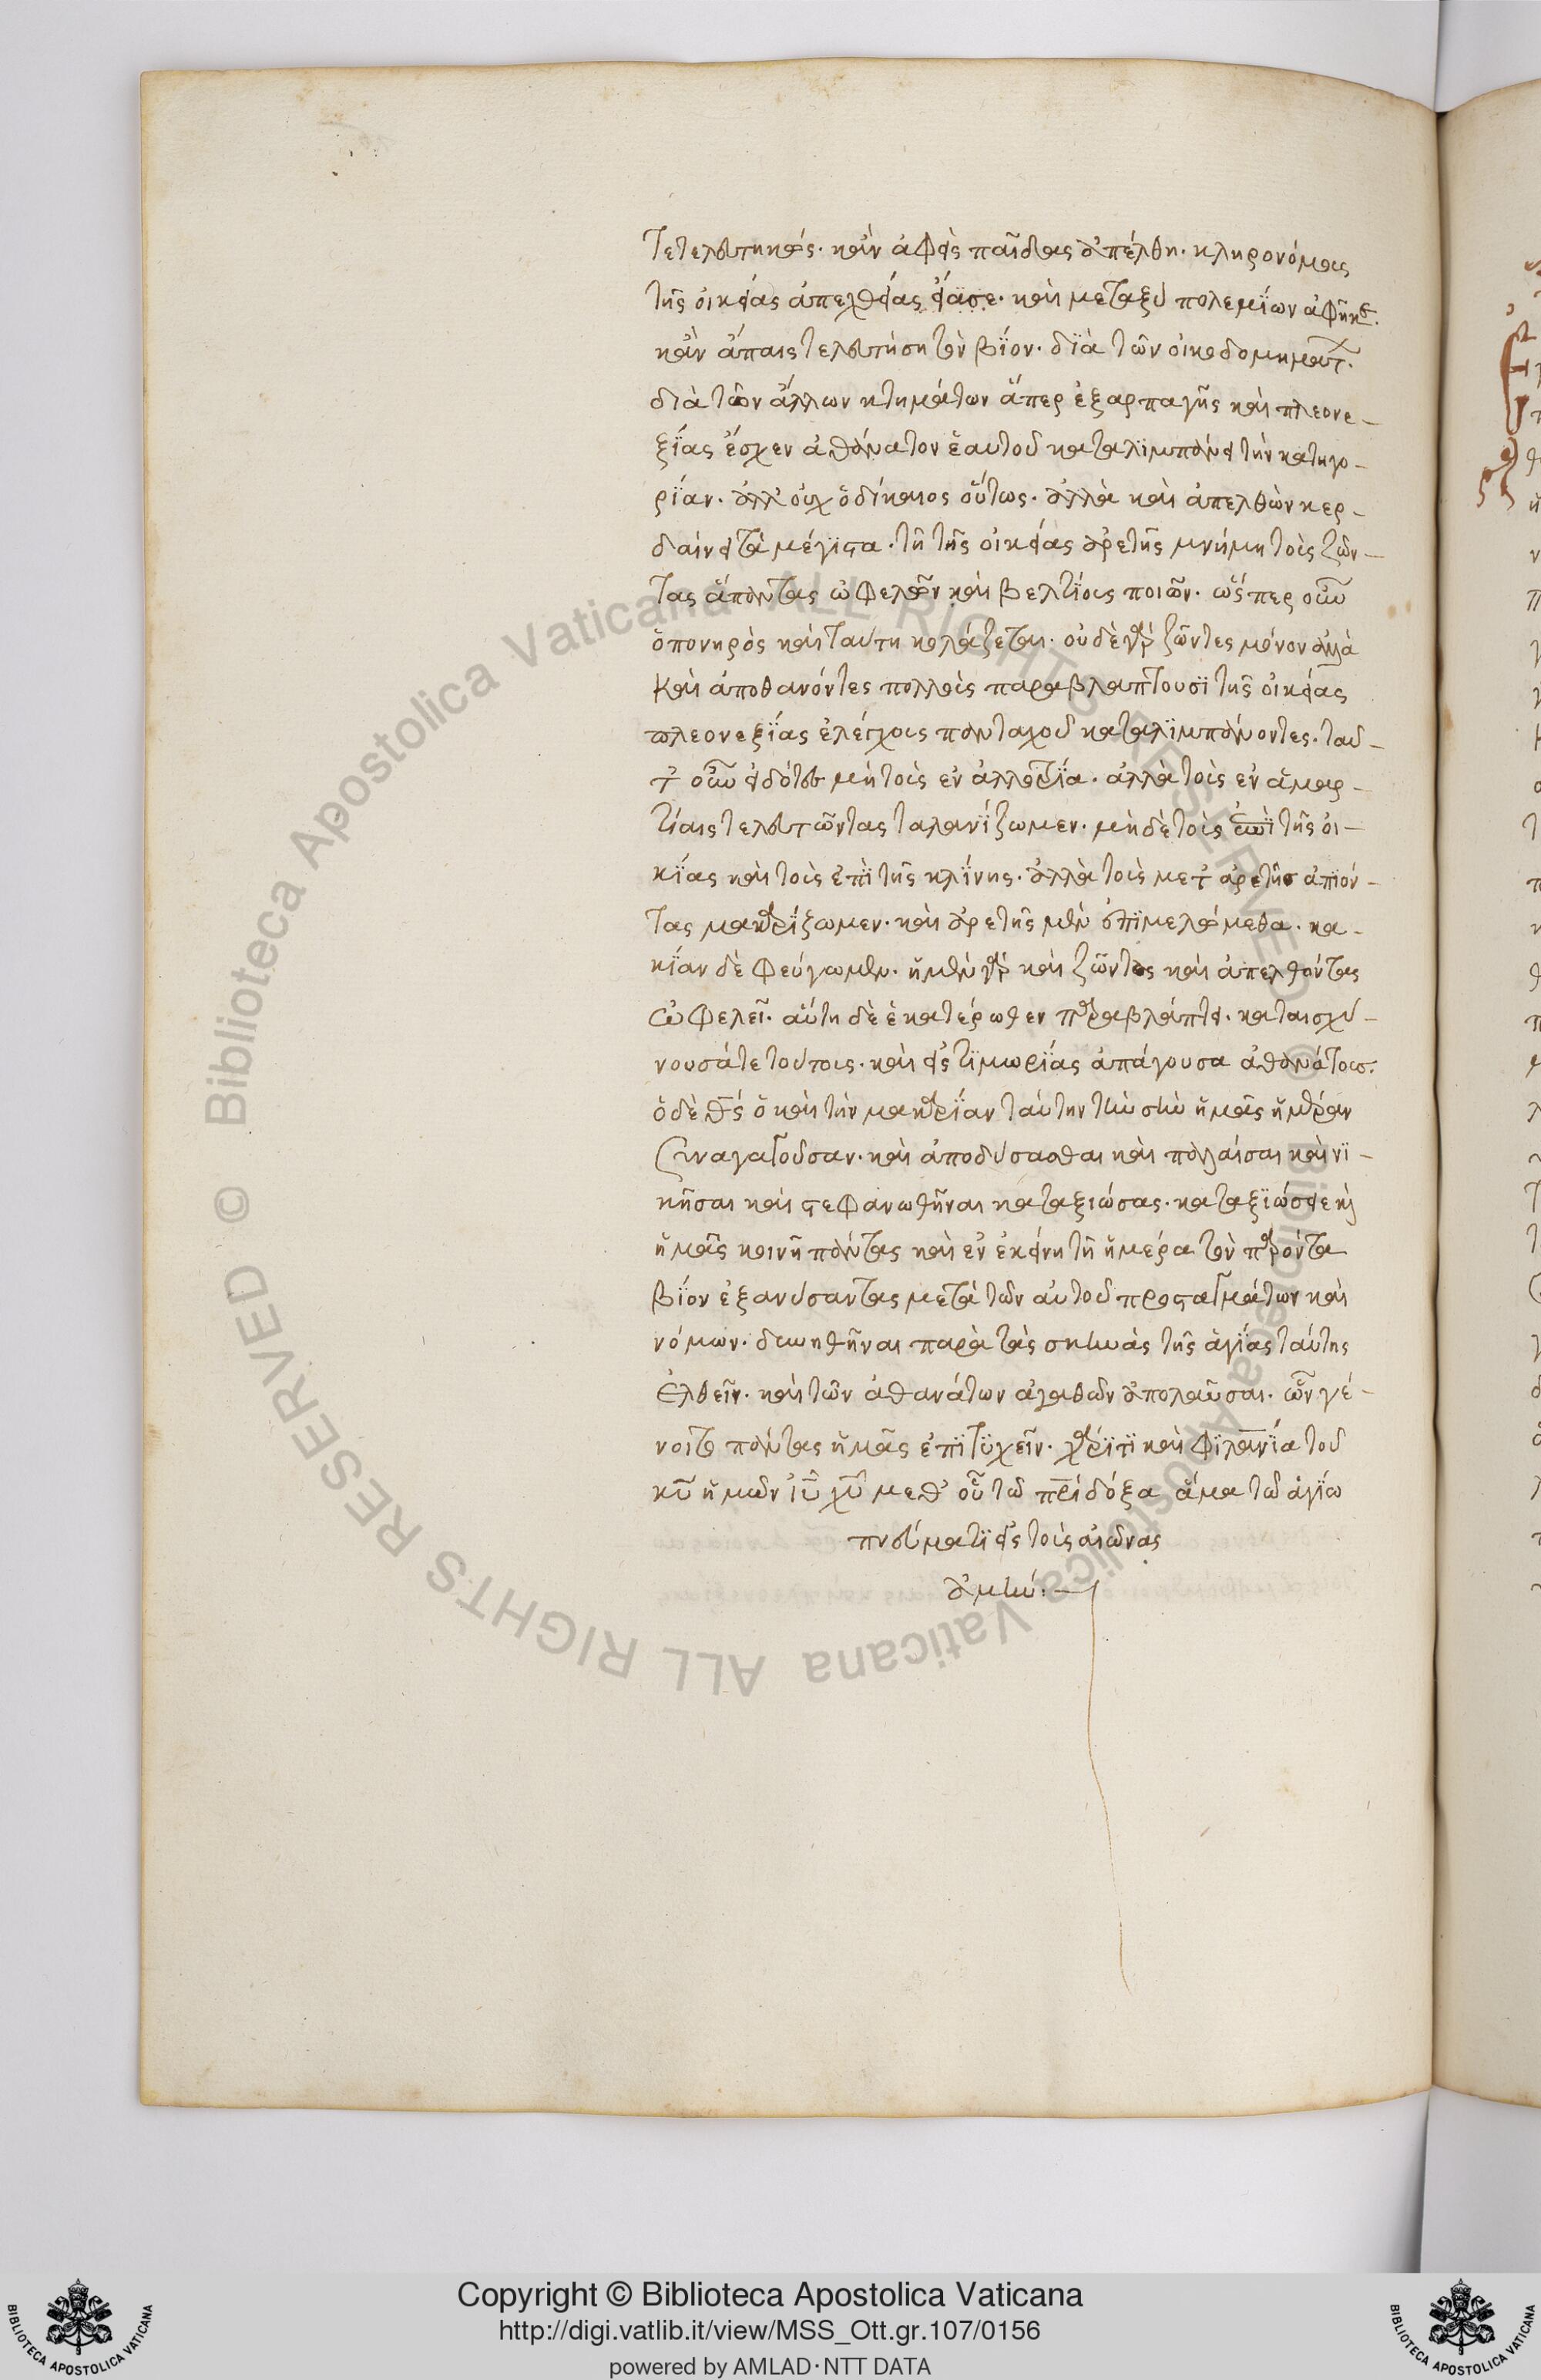 τετελευτηκώς. κἂν ἀφεὶς παῖδας ἀπέλθη. κληρονόμους
τῆς οἰκείας ἀπεχθείας εἴασε. καὶ μεταξὺ πολεμΐων ἀφῆκε.
κἂν ἄπαις τελευτήση τὸν βΐον. δϊὰ τῶν οἰκοδομημάτ.
διὰ τῶν ἄλλων κτημάτων ἅπερ ἐξαρπαγῆς καὶ πλεονε-
ξΐας ἔσχεν ἀθάνατον ἑαυτοῦ καταλϊμπάνει τὴν κατηγο-
ρΐαν. ἀλλ' οὐχ ὁ δίκαιος οὕτως. ἀλλὰ καὶ ἀπελθὼν κερ-
δαίνει τὰ μέγϊστα. τῆ τῆς οἰκείας ἀρετῆς μνήμη τοὺς ζῶν-
τας ἅπαντας ὠφελῶν καὶ βελτΐους ποιῶν. ὥσπερ οὖν
ὁ πονηρὸς καὶ ταύτη κολάζεται. οὐδὲ γὰρ ζῶντες μόνον ἀλλὰ
Καὶ ἀποθανόντες πολλοὺς παραβλαπτουσϊ τῆς οἰκείας
πλεονεξΐας ἐλέγχους πανταχοῦ καταλϊμπάνοντες. ταῦ-
τ οὖν εἰδότες μὴ τοὺς ἐν ἀλλοτρΐα. ἀλλὰ τοὺς ἐν ἁμαρ-
τίαις τελευτῶντας ταλανΐζωμεν. μὴ δὲ τοὺς ἐπὶ τῆς οἰ-
κΐας καὶ τοὺς ἐπὶ τῆς κλΐνης. ἀλλὰ τοὺς μετ ἀρετῆς ἀπϊόν-
τας μακαρΐζωμεν. καὶ ἀρετῆς μὲν ἐπϊμελώμεθα. κα-
κΐαν δὲ φεύγωμεν. ἡ μὲν γὰρ καὶ ζῶντας καὶ ἀπελθόντας
ὠφελεῖ. αὕτη δὲ ἑκατέρωθεν παραβλάπτει. καταισχύ-
νουσά τε τούτους. καὶ εἰς τϊμωρΐας ἀπάγουσα ἀθανάτους.
ὁ δὲ θς ὁ καὶ τὴν μακαρΐαν ταύτην τὴν σὴν ἡμᾶς ἡμέραν
συναγαγοῦσαν. καὶ ἀποδύσασθαι καὶ παλαίσαι καὶ νϊ-
κῆσαι καὶ στεφανωθῆναι καταξιώσας. καταξϊώσειε κ
ἡμᾶς κοινῆ πάντας καὶ ἐν ἐκείνη τῆ ἡμέρα τὸν παρόντα
βΐον ἐξανύσαντας μετὰ τῶν αὐτοῦ προσταγμάτων καὶ
νόμων. δυνηθῆναι παρὰ τὰς σκηνὰς τῆς ἁγΐας ταύτης
ἐλθεῖν. καὶ τῶν ἀθανάτων ἀγαθῶν ἀπολαῦσαι. ὧν γέ-
νοιτο πάντας ἡμᾶς ἐπϊτϋχεῖν. χάρϊτϊ καὶ φϊλανΐα τοῦ
κυ ἡμῶν ιυ χυ μεθ' οὗ τῶ πρι δόξα ἅμα τῶ ἁγΐω
πνεύματϊ εἰς τοὺς αἰῶνας
ἀμήν:—
Copyright © Biblioteca Apostolica Vaticana
http://digi.vatlib.it/view/MSS_Ott.gr.107/0156
powered by AMLAD·NTT DATA
BIBLIOTECA APOSTOLICA VATICANA
BIBLIOTECA APOSTOLICA VATICANA
© Biblioteca Apostolica Vaticana ALL RIGHTS RESERVED © Biblioteca Apostolica Vaticana ALL RIGHTS RESERVED